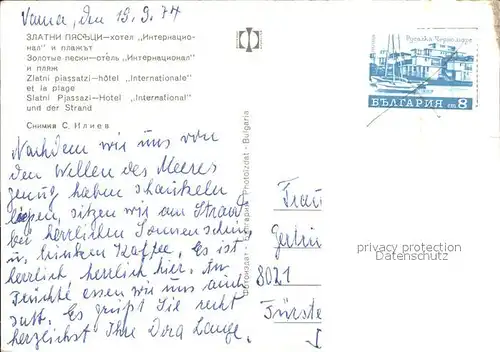 Varna, den 13.9.74
ЗЛАТНИ ПЯСЪЦИ—хотел „Интернацио-
нал" и плажът
Золотые пески—отель „Интернационал"
и пляж
Zlatni piassatzi—hôtel „Internationale"
et la plage
Slatni Pjassazi—Hotel „International"
und der Strand
Снимка С. Илиев
Nachdem wir uns von
den Wellen des Meeres
genug haben schaukeln
lassen, sitzen wir am Strand
bei herrlichem Sonnenschein
u. trinken Kaffee. Es ist
herrlich herrlich hier. An
Früchte essen wir uns auch
satt. Es grüßt Sie recht
herzlichst Ihre Dora Lange.
Фотоиздат - България Photoizdat - Bulgaria
Русалка Черно море
БЪЛГАРИЯ ст 8
Frau
8021
Fürste
privacy protection
DatenSchutz